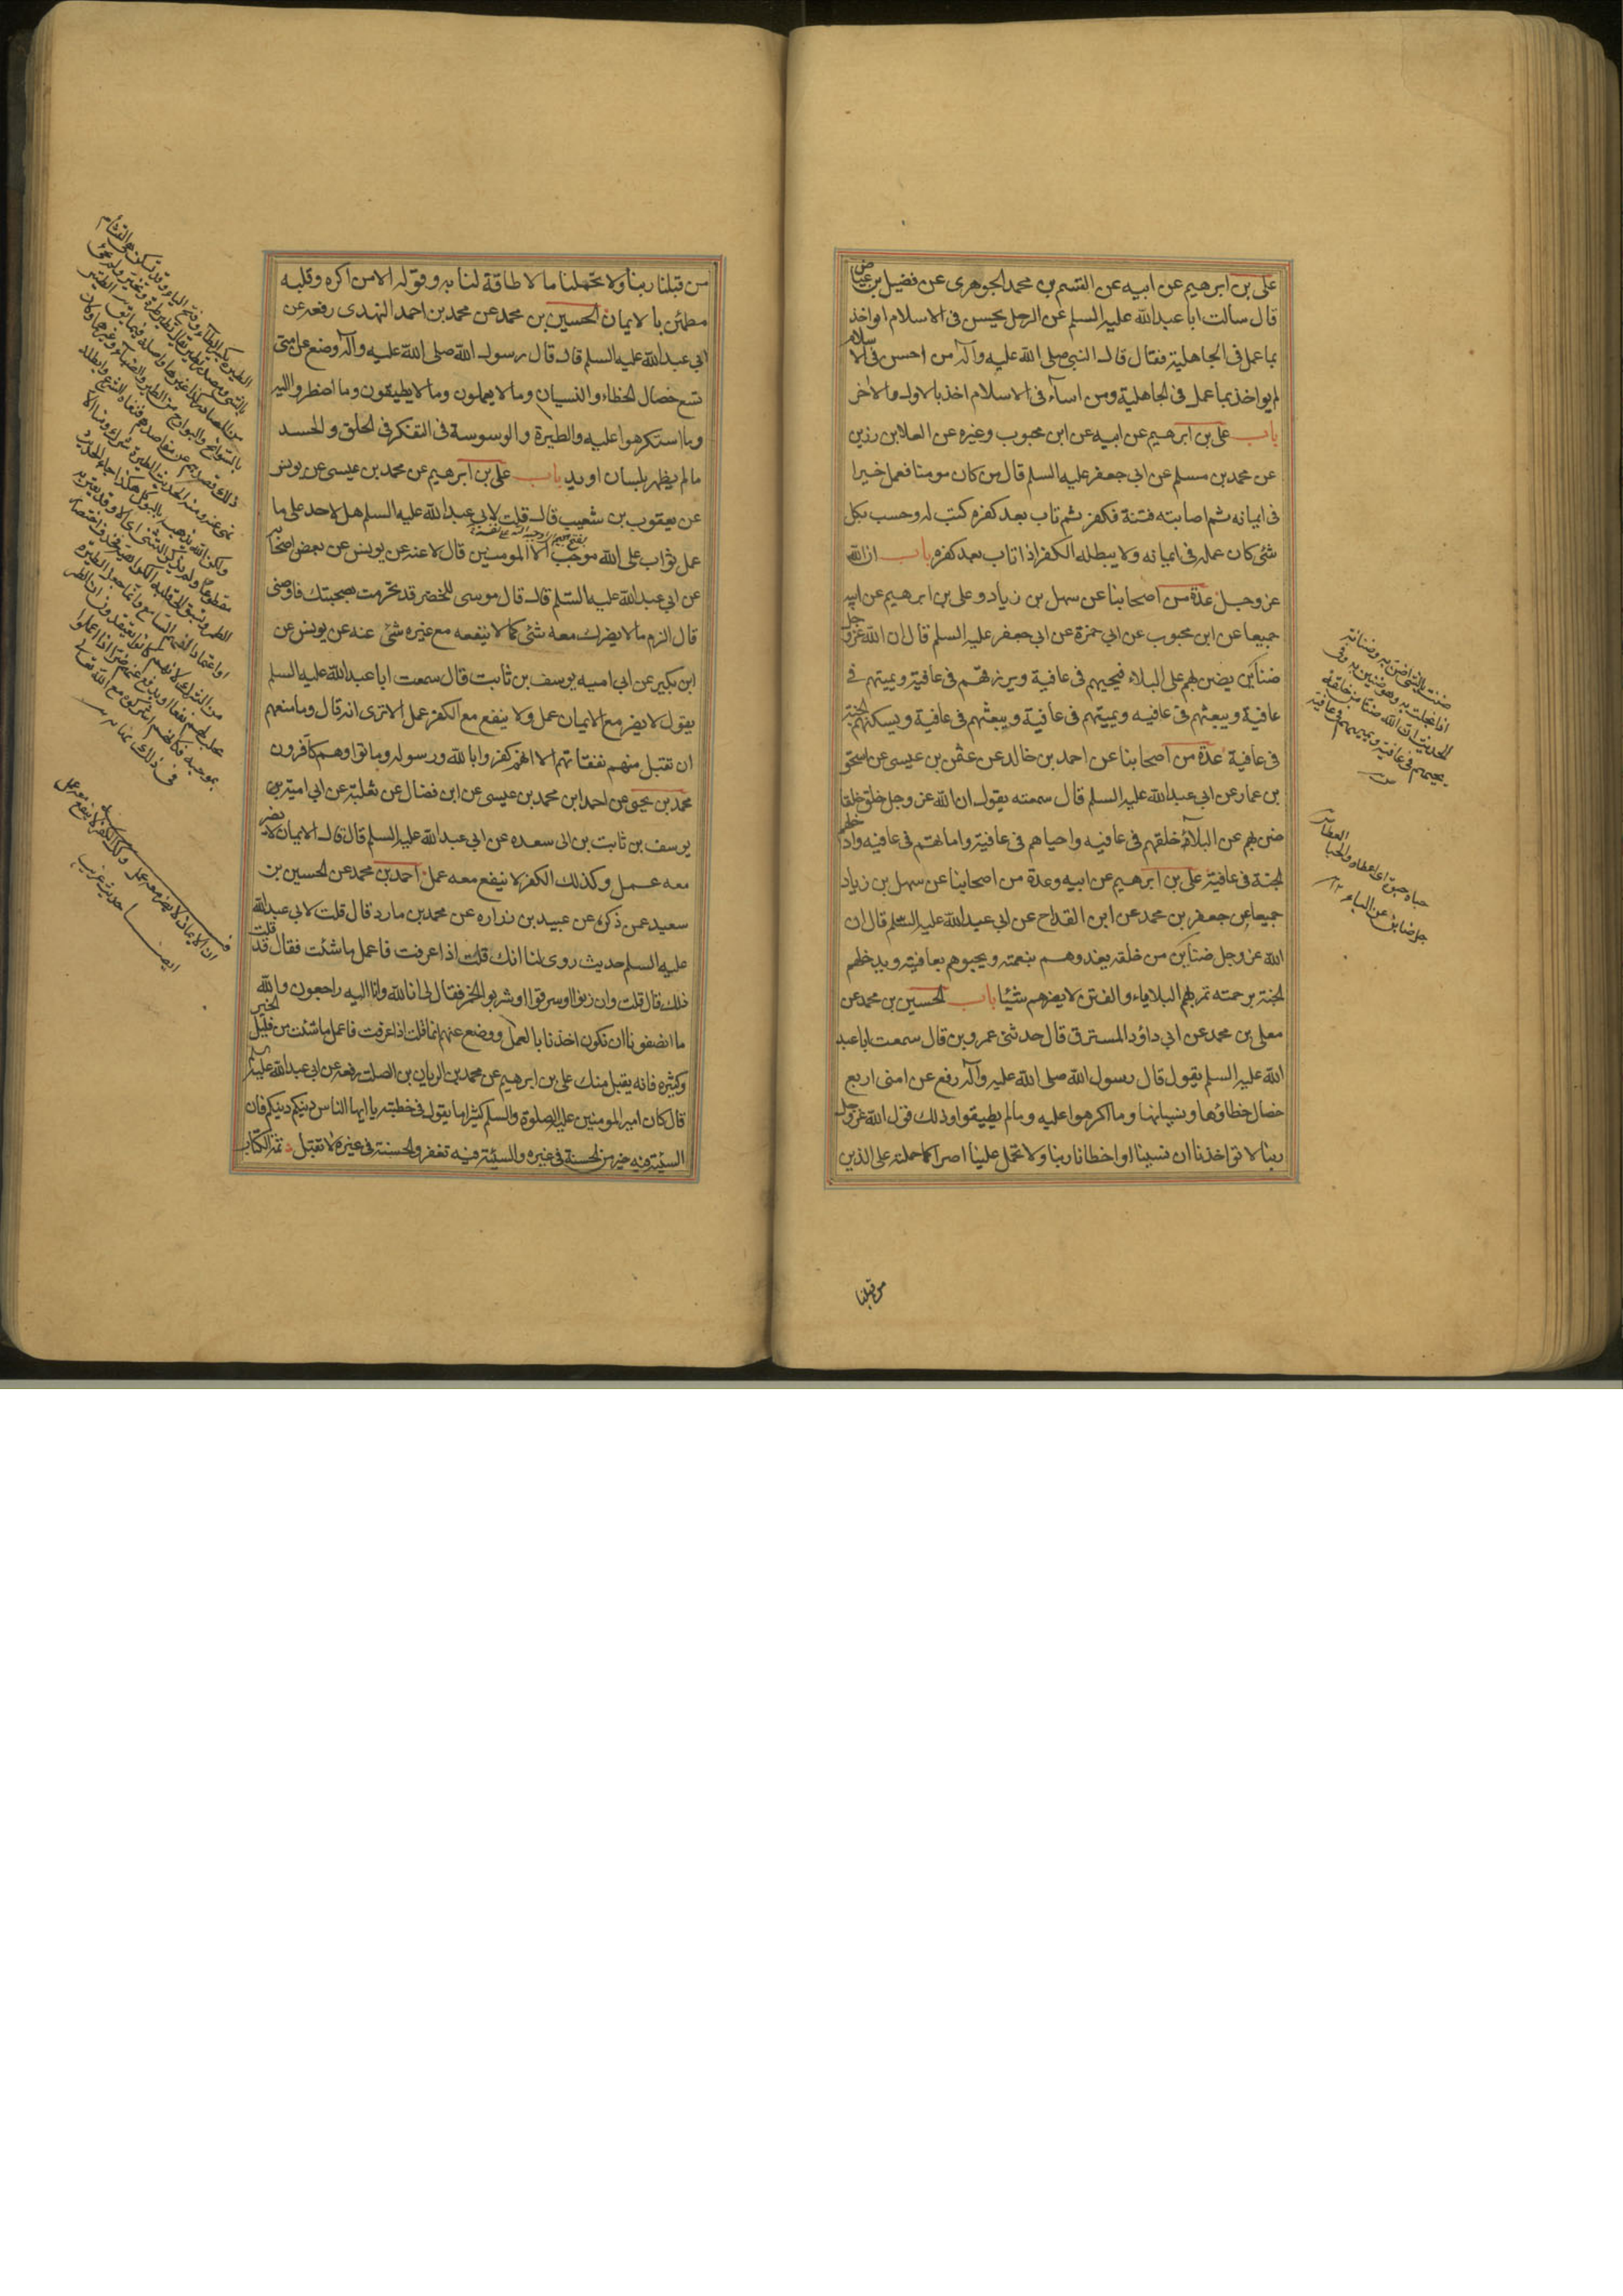 على بن ابرهيم عن ابيه عن القسم بن محمد الجوهرى عن فضيل بن عياض
قال سألت ابا عبد الله عليه السلم عن الرجل يحسن فى الاسلام اواخذ
بما عمل فى الجاهلية فقال قال النبي صلى الله عليه وآله من احسن فى الاسلام
لم يواخذ بما عمل فى الجاهلية ومن اسآء فى الاسلام اخذ بالاول والاخر
باب على بن ابرهيم عن ابيه عن ابن محبوب وغيره عن العلا بن رزين
عن محمد بن مسلم عن ابي جعفر عليه السلم قال من كان مومنا فعمل خيرا
فى ايمانه ثم اصابته فتنة فكفر ثم تاب بعد كفره كتب له وحسب بكل
شئ كان عمله فى ايمانه ولا يبطله الكفر اذا تاب بعد كفره باب ان الله
عز وجل عدة من اصحابنا عن سهل بن زياد وعلى بن ابرهيم عن ابيه
جميعا عن ابن محبوب عن ابي حمزة عن ابي جعفر عليه السلم قال ان الله عز وجل
ضنآئن يضن بهم على البلاء فيحييهم فى عافية ويرزقهم فى عافية ويميتهم فى
عافية ويبعثهم فى عافيه ويميتهم فى عافية ويبعثهم فى عافية ويسكنهم الجنة
فى عافية عدة من اصحابنا عن احمد بن خالد عن عثمن بن عيسى عن اسحق
بن عمار عن ابي عبد الله عليه السلم قال سمعته يقول ان الله عز وجل خلق خلقا
ضن بهم عن البلآء خلقهم فى عافيه واحياهم فى عافية واماتهم فى عافيه وادخلهم
الجنة فى عافية على بن ابرهيم عن ابيه وعدة من اصحابنا عن سهل بن زياد
جميعا عن جعفر بن محمد عن ابن القداح عن ابي عبد الله عليه السلم قال ان
الله عز وجل ضنآئن من خلقه يغذوهم بنعمته ويحبوهم بعافيته ويدخلهم
الجنة برحمته تمر بهم البلاياء والفتن لا يضرهم شيئا باب الحسين بن محمد عن
معلى بن محمد عن ابي داؤد المسترق قال حدثنى عمرو بن قال سمعت ابا عبد
الله عليه السلم يقول قال رسول الله صلى الله عليه وآله رفع عن امتى اربع
خصال خطاؤها ونسيانها وما اكرهوا عليه وما لم يطيقوا وذلك قول الله عز وجل
ربنا لا تواخذنا ان نسينا او اخطانا ربنا ولا تحمل علينا اصرا كما حملته على الذين
من قبلنا
ضننت بالشئ اضن به وضنانة
اذا بخلت به وهو ضنين به وفى
الحديث ان لله ضنا من خلقه
يحييهم فى عافية ويميتهم فى عافية
حباه حبوة اى اعطاه والحبا
العطاء
من قبلنا ربنا ولا تحملنا ما لا طاقة لنا به وقوله الا من اكره وقلبه
مطمئن بالايمان الحسين بن محمد عن محمد بن احمد النهدى رفعه عن
ابي عبد الله عليه السلم قال قال رسول الله صلى الله عليه وآله وضع عن امتى
تسع خصال الخطاء والنسيان وما لا يعلمون وما لا يطيقون وما اضطروا اليه
وما استكرهوا عليه والطيرة والوسوسة فى التفكر فى الخلق والحسد
ما لم يظهر بلسان او يد باب على بن ابرهيم عن محمد بن عيسى عن يونس
عن يعقوب بن شعيب قال قلت لابي عبد الله عليه السلم هل لاحد على ما
عمل ثواب على الله موجب الا المومنين قال لا عنه عن يونس عن بعض اصحابه
عن ابي عبد الله عليه السلم قال قال موسى للخضر قد تحرمت بصحبتك فاوصنى
قال الزم ما لا يضرك معه شئ كما لا ينفعه مع غيره شئ عنه عن يونس عن
ابن بكير عن ابي اميه يوسف بن ثابت قال سمعت ابا عبد الله عليه السلم
يقول لا يضر مع الايمان عمل ولا ينفع مع الكفر عمل الا ترى انه قال وما منعهم
ان تقبل منهم نفقاتهم الا انهم كفروا بالله ورسوله وماتوا وهم كآفرون
محمد بن يحيى عن احمد ابن محمد بن عيسى عن ابن فضال عن ثعلبة عن ابي امية
يوسف بن ثابت بن ابى سعده عن ابي عبد الله عليه السلم قال قال الايمان لا يضر
معه عمل وكذلك الكفر لا ينفع معه عمل احمد بن محمد عن الحسين بن
سعيد عمن ذكره عن عبيد بن زراره عن محمد بن مارد قال قلت لابي عبد الله
عليه السلم حديث روى لنا انك قلت اذا عرفت فاعمل ما شئت فقال قد قلت
ذلك قال قلت وان زنوا او سرقوا او شربوا الخمر فقال لى انا لله وانا اليه راجعون والله
ما انصفونا ان نكون اخذنا بالعمل ووضع عنهم انما قلت اذا عرفت فاعمل ما شئت من قليل الخير
وكثيره فانه يقبل منك على بن ابرهيم عن محمد بن الريان بن الصلت رفعه عن ابي عبد الله عليه السلم
قال كان امير المومنين عليه الصلوة والسلم كثيرا ما يقول فى خطبته يا ايها الناس دينكم دينكم فان
السيئة فيه خير من الحسنة فى غيره والسيئة فيه تغفر والحسنة فى غيره لا تقبل تمة الكتاب
ان الايمان لا يضر معه عمل وكذلك الكفر لا ينفع معه عمل
ايضا حديث غريب